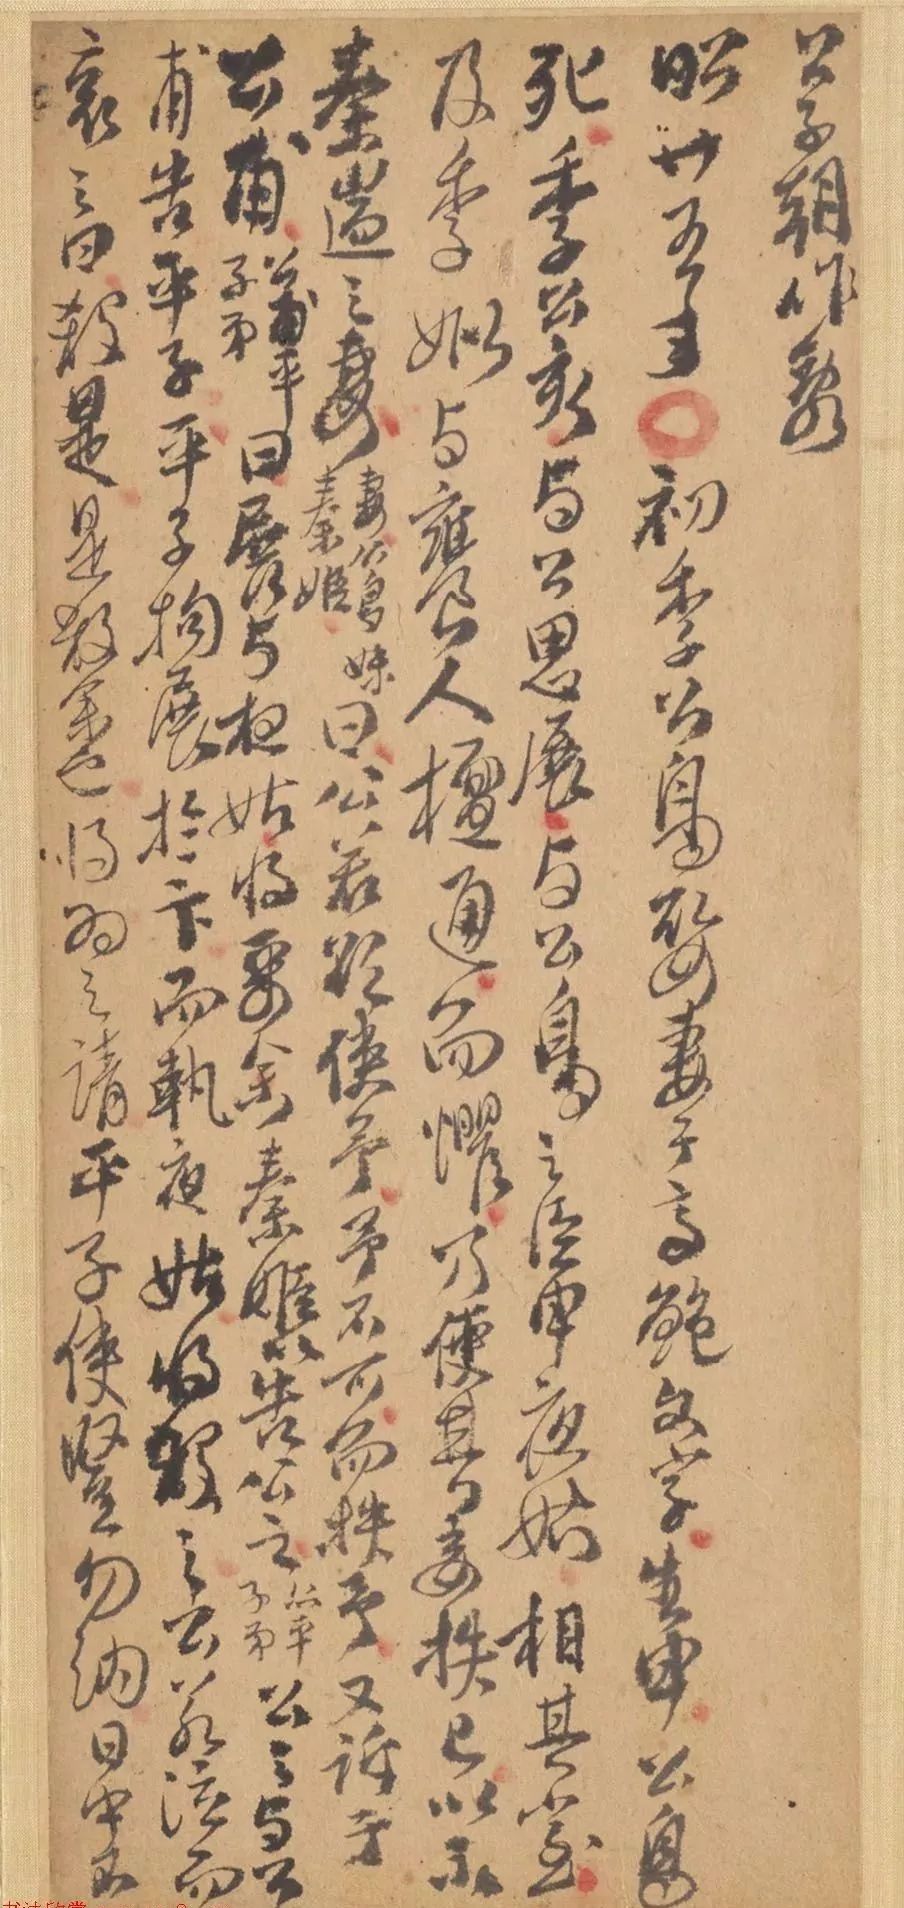 公子朝作乱
昭廿五年○初季公鳥娶妻于齐鮑文字生申公鳥
死季公亥与公思展与公鳥之臣申夜姑相其室
及季姒与饔人檀通而懼乃使其妾抶己以示
秦遄之妻妻公鳥妹秦姬曰公若欲使予予不可而抶予又訴于
公甫公甫平子弟曰展与夜姑将要余秦姬以告公之公之平子弟公之与公
甫告平子平子拘展於卞而執夜姑将殺之公若泣而
哀之曰殺是是殺余也将为之請平子使豎勿納日中不